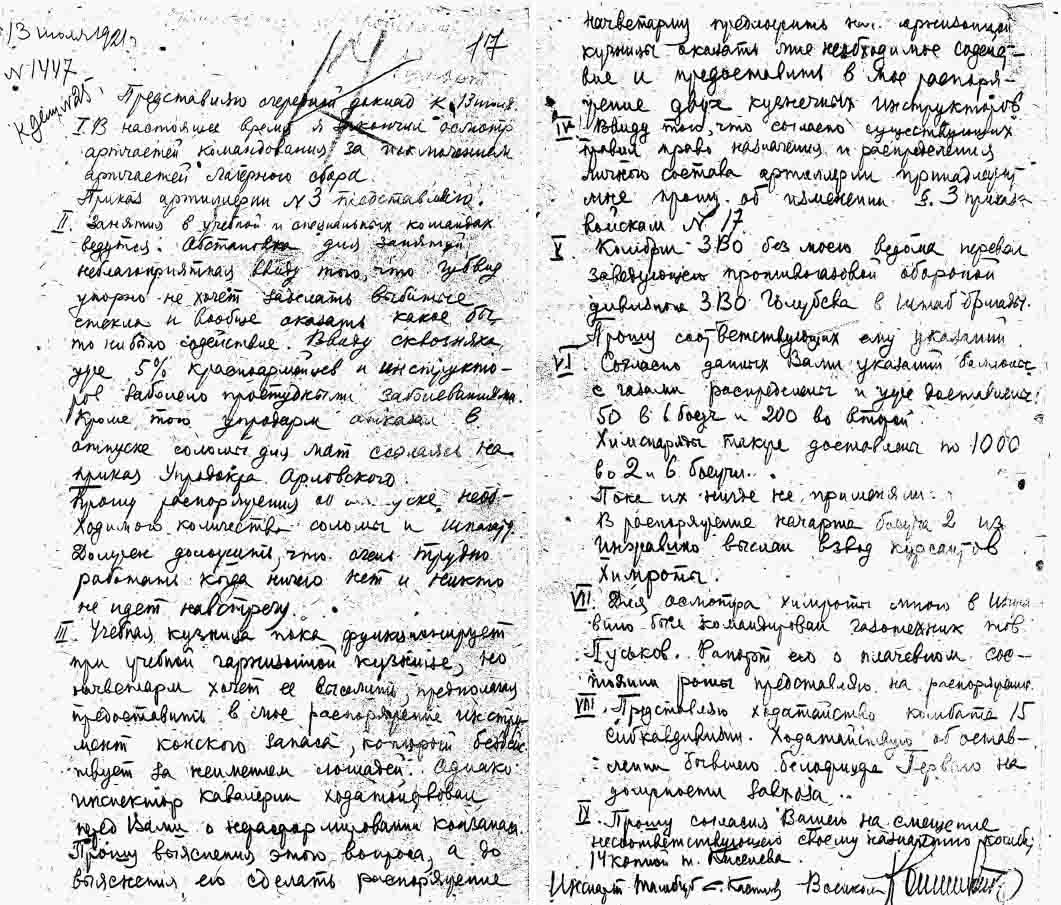 13 июля 1921 г.
17
N 1447
К делу N 25.
Представляю очередной доклад к 13 июля.
I. В настоящее время я закончил осмотр
артчастей командования за исключением
артчастей лагерного сбора.
Приказ артиллерии N 3 представляю.
II. Занятия в учебной и специальных командах
ведутся. Обстановка для занятий
неблагоприятная ввиду того, что
упорно не хочет заделать выбитые
стекла и вообще оказать какое бы
то ни было содействие. Ввиду сквозняка
уже 5% красноармейцев и инструкто-
ров заболело простудными заболеваниями.
Кроме того упродарм отказал в
отпуске соломы для мат ссылаясь на
приказ Упродокра Орловского.
Прошу распоряжения об отпуске необ-
ходимого количества соломы и шпагату.
Должен доложить, что очень трудно
работать когда ничего нет и никто
не идет навстречу.
III. Учебная кузница пока функционирует
при учебной гарнизонной кузнице, но
начветарм хочет ее выселить предполагая
предоставить в мое распоряжение инстру-
мент конского запаса, который бездей-
ствует за неимением лошадей. Однако
инспектор кавалерии ходатайствовал
перед Вами о нерасформировании конзапаса.
Прошу выяснения этого вопроса, а до
выяснения его сделать распоряжение
начветарму предложить нач. гарнизонной
кузницы оказать мне необходимое содейст-
вие и предоставить в мое распоря-
жение двух кузнечных инструкторов
IV. Ввиду того, что согласно существующих
правил право назначения и распределения
личного состава артиллерии принадлежит
мне прошу об изменении §. 3 приказа
войскам N 17.
V. Комбриг ЗВО без моего ведома перевел
заведующего противогазовой обороной
дивизиона ЗВО Голубева в штаб бригады.
Прошу соответствующих ему указаний.
VI. Согласно данных Вами указаний баллоны
с газами распределены и уже доставлены:
50 в 6 боеуч и 200 во второй.
Химснаряды также доставлены по 1000
во 2 и 6 боеучи.
Пока их нигде не применяли.
В распоряжение начарта боеуча 2 из
Инжавино выслан взвод курсантов
Химроты.
VII. Для осмотра химроты мною в Инжа-
вино был командирован газотехник тов.
Пуськов. Рапорт его о плачевном сос-
тоянии роты представляю на распоряжение.
VIII. Представляю ходатайство комбата 15
Сибкавдивизии. Ходатайствую об остав-
лении бывшего белофицера Первого на
должности завхоза.
IV. Прошу согласия Вашего на смещение
несоответствующего своему назначению
14 конной т. Киселева.